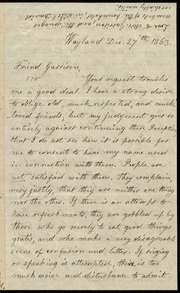 Wayland Dec. 27th 1862
Friend Garrison,
Your request troubles
me a good deal. I have a strong desire
to oblige old, much respected, and much
loved friends, but my judgment goes so
entirely against continuing these Recept
that I do not see how it is possible for
me to consent to have my name used
in connection with them. People are
not satisfied with them. They complain,
very justly, that they are neither one thing
nor the other. If there is an attempt to
have refreshments, they are gobbled up by
those who go merely to eat good things
gratis, and who make a very disagreeable
scene of confusion and litter. If singing
or speaking is attempted, there is too
much noise and disturbance to admit